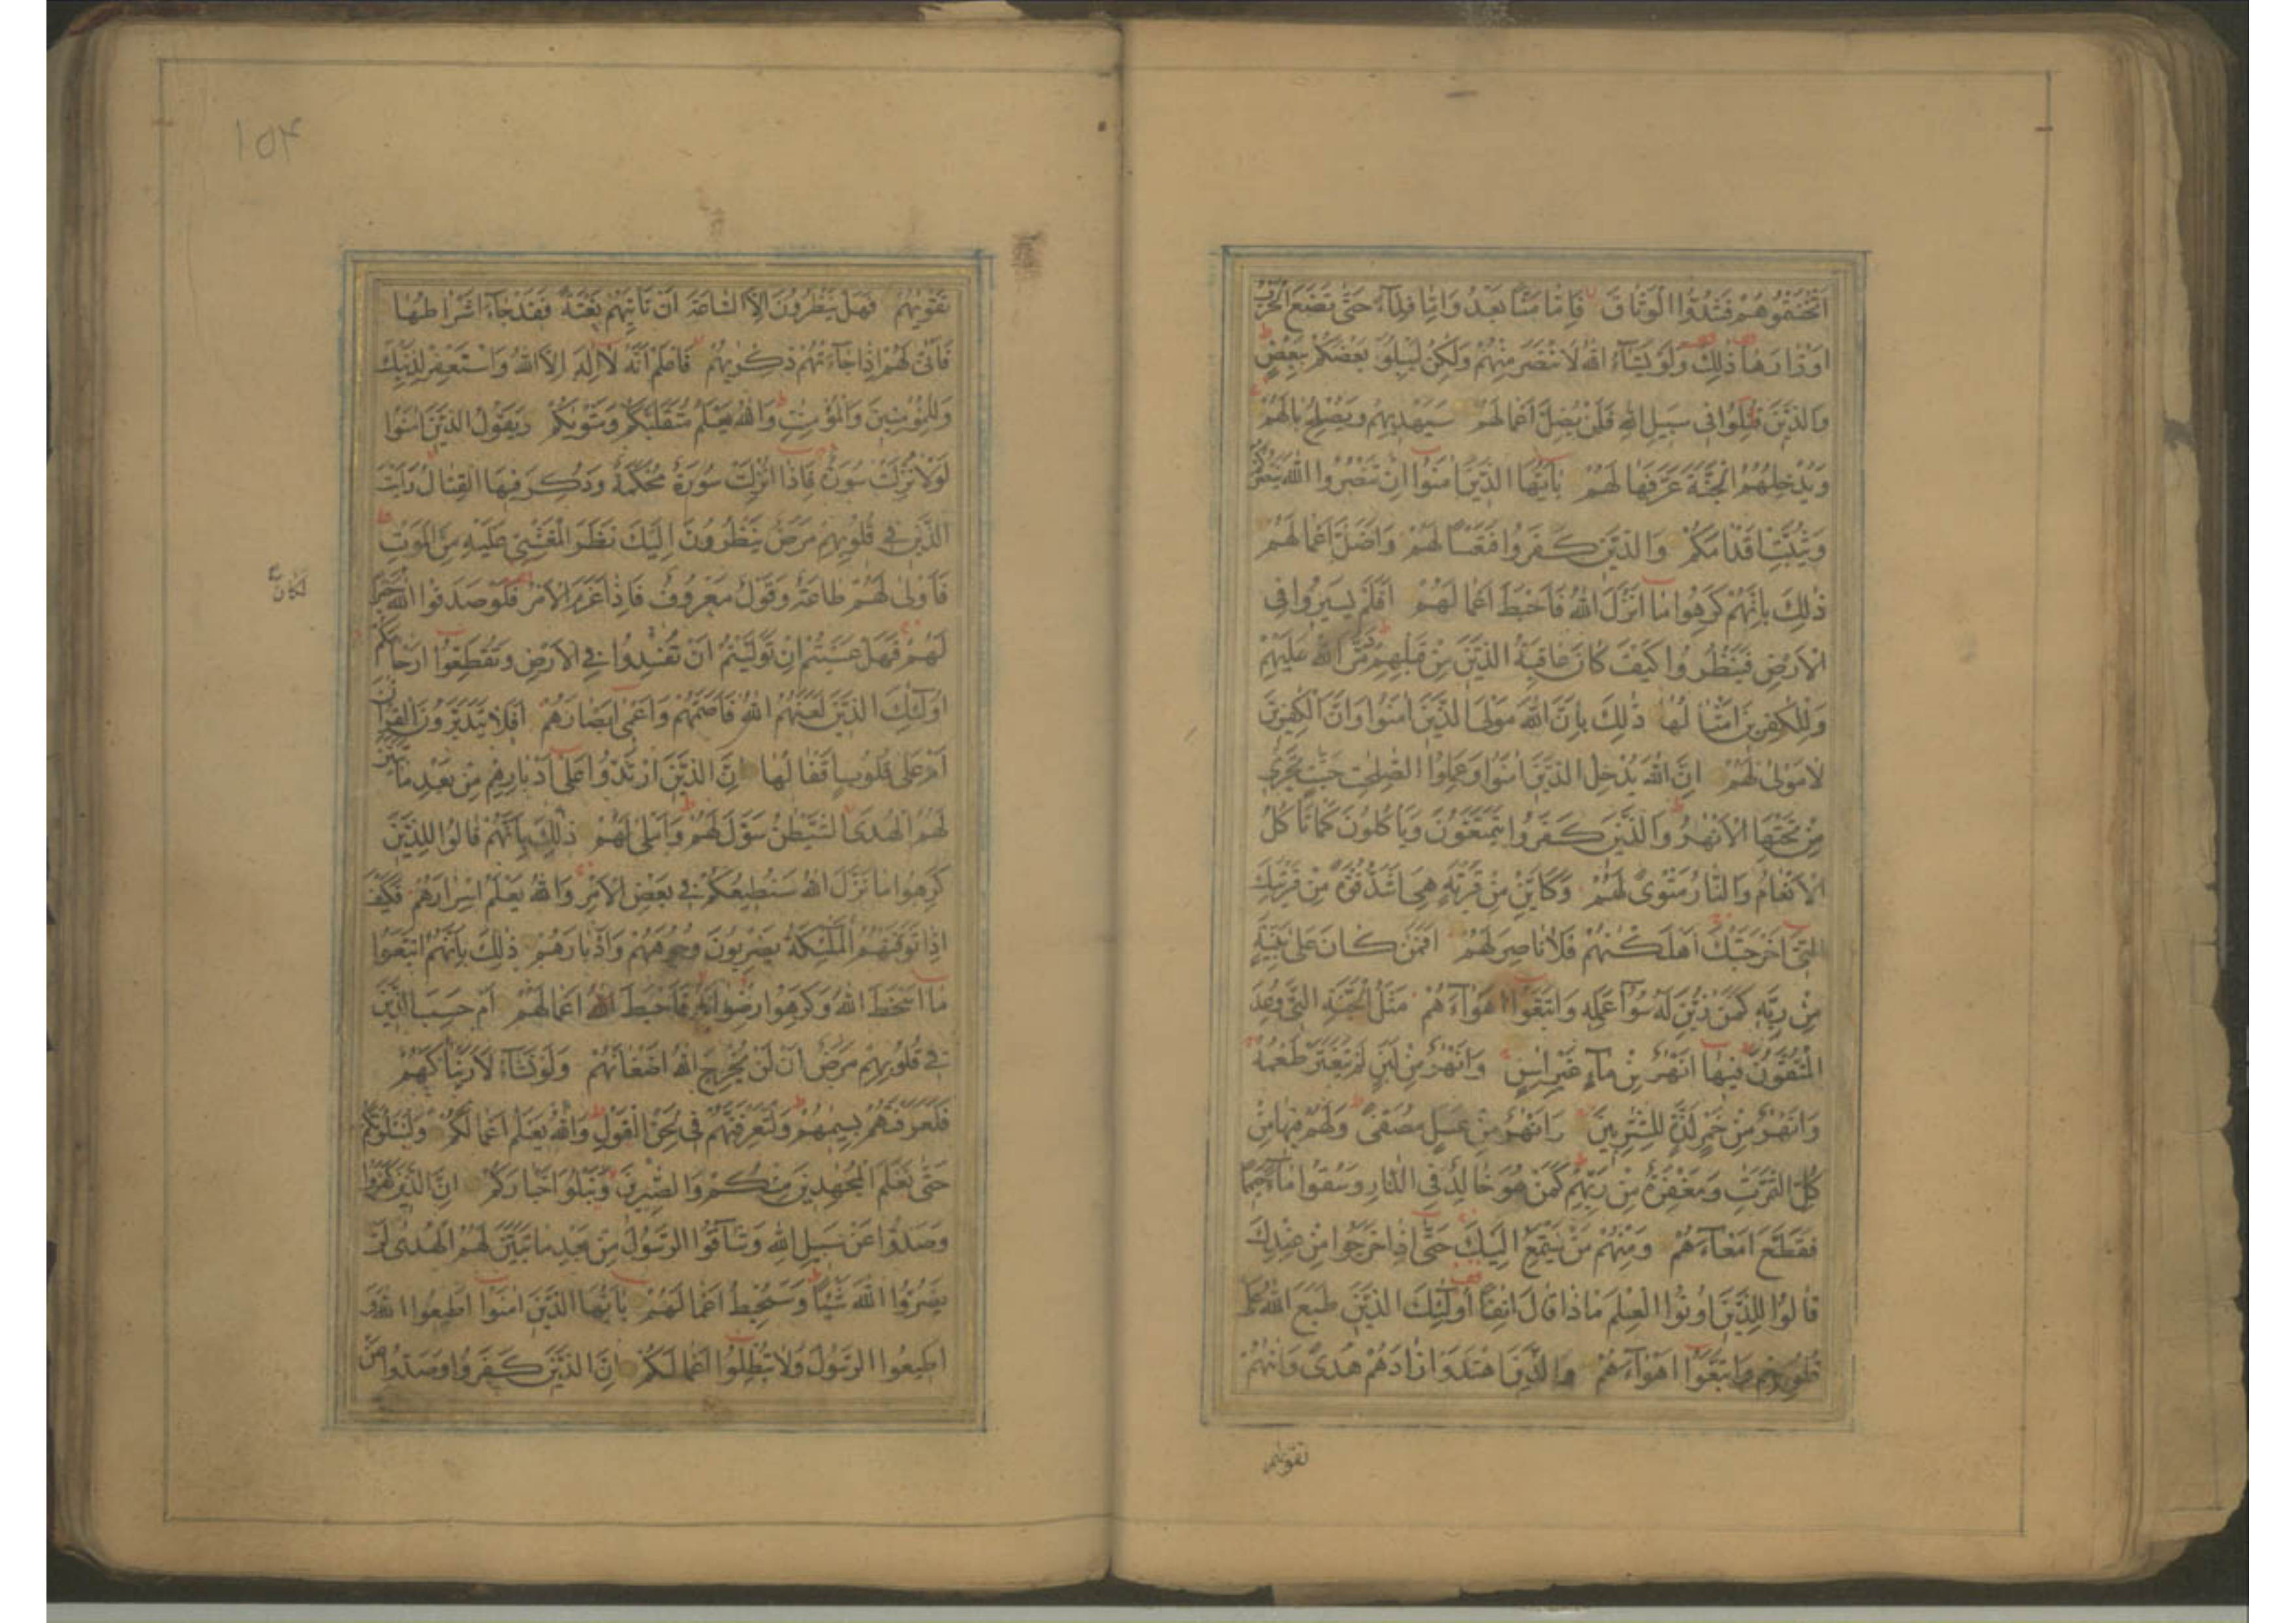 اَثْخَنْتُمُوهُمْ فَشُدُّوا الْوَثَاقَ فَاِمَّا مَنًّا بَعْدُ وَاِمَّا فِدَآءً حَتّٰى تَضَعَ الْحَرْبُ
اَوْزَارَهَا ذٰلِكَ وَلَوْ يَشَآءُ اللّٰهُ لَانْتَصَرَ مِنْهُمْ وَلٰكِنْ لِيَبْلُوَ بَعْضَكُمْ بِبَعْضٍ
وَالَّذِيْنَ قُتِلُوْا فِى سَبِيْلِ اللّٰهِ فَلَنْ يُضِلَّ اَعْمَالَهُمْ سَيَهْدِيْهِمْ وَيُصْلِحُ بَالَهُمْ
وَيُدْخِلُهُمُ الْجَنَّةَ عَرَّفَهَا لَهُمْ يٰٓاَيُّهَا الَّذِيْنَ اٰمَنُوْٓا اِنْ تَنْصُرُوا اللّٰهَ يَنْصُرْكُمْ
وَيُثَبِّتْ اَقْدَامَكُمْ وَالَّذِيْنَ كَفَرُوْا فَتَعْسًا لَهُمْ وَاَضَلَّ اَعْمَالَهُمْ
ذٰلِكَ بِاَنَّهُمْ كَرِهُوْا مَآ اَنْزَلَ اللّٰهُ فَاَحْبَطَ اَعْمَالَهُمْ اَفَلَمْ يَسِيْرُوْا فِى
الْاَرْضِ فَيَنْظُرُوْا كَيْفَ كَانَ عَاقِبَةُ الَّذِيْنَ مِنْ قَبْلِهِمْ دَمَّرَ اللّٰهُ عَلَيْهِمْ
وَلِلْكٰفِرِيْنَ اَمْثَالُهَا ذٰلِكَ بِاَنَّ اللّٰهَ مَوْلَى الَّذِيْنَ اٰمَنُوْا وَاَنَّ الْكٰفِرِيْنَ
لَا مَوْلٰى لَهُمْ اِنَّ اللّٰهَ يُدْخِلُ الَّذِيْنَ اٰمَنُوْا وَعَمِلُوا الصّٰلِحٰتِ جَنّٰتٍ تَجْرِىْ
مِنْ تَحْتِهَا الْاَنْهٰرُ وَالَّذِيْنَ كَفَرُوْا يَتَمَتَّعُوْنَ وَيَاْكُلُوْنَ كَمَا تَاْكُلُ
الْاَنْعَامُ وَالنَّارُ مَثْوًى لَهُمْ وَكَاَيِّنْ مِنْ قَرْيَةٍ هِىَ اَشَدُّ قُوَّةً مِنْ قَرْيَتِكَ
الَّتِىْٓ اَخْرَجَتْكَ اَهْلَكْنٰهُمْ فَلَا نَاصِرَ لَهُمْ اَفَمَنْ كَانَ عَلٰى بَيِّنَةٍ
مِنْ رَبِّهٖ كَمَنْ زُيِّنَ لَهٗ سُوْٓءُ عَمَلِهٖ وَاتَّبَعُوْٓا اَهْوَآءَهُمْ مَثَلُ الْجَنَّةِ الَّتِىْ وُعِدَ
الْمُتَّقُوْنَ فِيْهَآ اَنْهٰرٌ مِنْ مَآءٍ غَيْرِ اٰسِنٍ وَاَنْهٰرٌ مِنْ لَبَنٍ لَمْ يَتَغَيَّرْ طَعْمُهٗ
وَاَنْهٰرٌ مِنْ خَمْرٍ لَذَّةٍ لِلشّٰرِبِيْنَ وَاَنْهٰرٌ مِنْ عَسَلٍ مُصَفًّى وَلَهُمْ فِيْهَا مِنْ
كُلِّ الثَّمَرٰتِ وَمَغْفِرَةٌ مِنْ رَبِّهِمْ كَمَنْ هُوَ خَالِدٌ فِى النَّارِ وَسُقُوْا مَآءً حَمِيْمًا
فَقَطَّعَ اَمْعَآءَهُمْ وَمِنْهُمْ مَنْ يَسْتَمِعُ اِلَيْكَ حَتّٰٓى اِذَا خَرَجُوْا مِنْ عِنْدِكَ
قَالُوْا لِلَّذِيْنَ اُوْتُوا الْعِلْمَ مَاذَا قَالَ اٰنِفًا اُولٰٓئِكَ الَّذِيْنَ طَبَعَ اللّٰهُ عَلٰى
قُلُوْبِهِمْ وَاتَّبَعُوْٓا اَهْوَآءَهُمْ وَالَّذِيْنَ اهْتَدَوْا زَادَهُمْ هُدًى وَاٰتٰهُمْ
تَقْوٰىهُمْ
١٥٤
تَقْوٰىهُمْ فَهَلْ يَنْظُرُوْنَ اِلَّا السَّاعَةَ اَنْ تَاْتِيَهُمْ بَغْتَةً فَقَدْ جَآءَ اَشْرَاطُهَا
فَاَنّٰى لَهُمْ اِذَا جَآءَتْهُمْ ذِكْرٰىهُمْ فَاعْلَمْ اَنَّهٗ لَآ اِلٰهَ اِلَّا اللّٰهُ وَاسْتَغْفِرْ لِذَنْبِكَ
وَلِلْمُؤْمِنِيْنَ وَالْمُؤْمِنٰتِ وَاللّٰهُ يَعْلَمُ مُتَقَلَّبَكُمْ وَمَثْوٰىكُمْ وَيَقُوْلُ الَّذِيْنَ اٰمَنُوْا
لَوْلَا نُزِّلَتْ سُوْرَةٌ فَاِذَآ اُنْزِلَتْ سُوْرَةٌ مُحْكَمَةٌ وَذُكِرَ فِيْهَا الْقِتَالُ رَاَيْتَ
الَّذِيْنَ فِى قُلُوْبِهِمْ مَرَضٌ يَنْظُرُوْنَ اِلَيْكَ نَظَرَ الْمَغْشِىِّ عَلَيْهِ مِنَ الْمَوْتِ
فَاَوْلٰى لَهُمْ طَاعَةٌ وَقَوْلٌ مَعْرُوْفٌ فَاِذَا عَزَمَ الْاَمْرُ فَلَوْ صَدَقُوا اللّٰهَ خَيْرًا
لَكَانَ
لَهُمْ فَهَلْ عَسَيْتُمْ اِنْ تَوَلَّيْتُمْ اَنْ تُفْسِدُوْا فِى الْاَرْضِ وَتُقَطِّعُوْٓا اَرْحَامَكُمْ
اُولٰٓئِكَ الَّذِيْنَ لَعَنَهُمُ اللّٰهُ فَاَصَمَّهُمْ وَاَعْمٰٓى اَبْصَارَهُمْ اَفَلَا يَتَدَبَّرُوْنَ الْقُرْاٰنَ
اَمْ عَلٰى قُلُوْبٍ اَقْفَالُهَا اِنَّ الَّذِيْنَ ارْتَدُّوْا عَلٰٓى اَدْبَارِهِمْ مِنْ بَعْدِ مَا تَبَيَّنَ
لَهُمُ الْهُدَى الشَّيْطٰنُ سَوَّلَ لَهُمْ وَاَمْلٰى لَهُمْ ذٰلِكَ بِاَنَّهُمْ قَالُوْا لِلَّذِيْنَ
كَرِهُوْا مَا نَزَّلَ اللّٰهُ سَنُطِيْعُكُمْ فِى بَعْضِ الْاَمْرِ وَاللّٰهُ يَعْلَمُ اِسْرَارَهُمْ فَكَيْفَ
اِذَا تَوَفَّتْهُمُ الْمَلٰٓئِكَةُ يَضْرِبُوْنَ وُجُوْهَهُمْ وَاَدْبَارَهُمْ ذٰلِكَ بِاَنَّهُمُ اتَّبَعُوْا
مَآ اَسْخَطَ اللّٰهَ وَكَرِهُوْا رِضْوَانَهٗ فَاَحْبَطَ اللّٰهُ اَعْمَالَهُمْ اَمْ حَسِبَ الَّذِيْنَ
فِى قُلُوْبِهِمْ مَرَضٌ اَنْ لَنْ يُخْرِجَ اللّٰهُ اَضْغَانَهُمْ وَلَوْ نَشَآءُ لَاَرَيْنٰكَهُمْ
فَلَعَرَفْتَهُمْ بِسِيْمٰهُمْ وَلَتَعْرِفَنَّهُمْ فِى لَحْنِ الْقَوْلِ وَاللّٰهُ يَعْلَمُ اَعْمَالَكُمْ وَلَنَبْلُوَنَّكُمْ
حَتّٰى نَعْلَمَ الْمُجٰهِدِيْنَ مِنْكُمْ وَالصّٰبِرِيْنَ وَنَبْلُوَا اَخْبَارَكُمْ اِنَّ الَّذِيْنَ كَفَرُوْا
وَصَدُّوْا عَنْ سَبِيْلِ اللّٰهِ وَشَآقُّوا الرَّسُوْلَ مِنْ بَعْدِ مَا تَبَيَّنَ لَهُمُ الْهُدٰى لَنْ
يَضُرُّوا اللّٰهَ شَيْئًا وَسَيُحْبِطُ اَعْمَالَهُمْ يٰٓاَيُّهَا الَّذِيْنَ اٰمَنُوْٓا اَطِيْعُوا اللّٰهَ وَ
اَطِيْعُوا الرَّسُوْلَ وَلَا تُبْطِلُوْٓا اَعْمَالَكُمْ اِنَّ الَّذِيْنَ كَفَرُوْا وَصَدُّوْا عَنْ